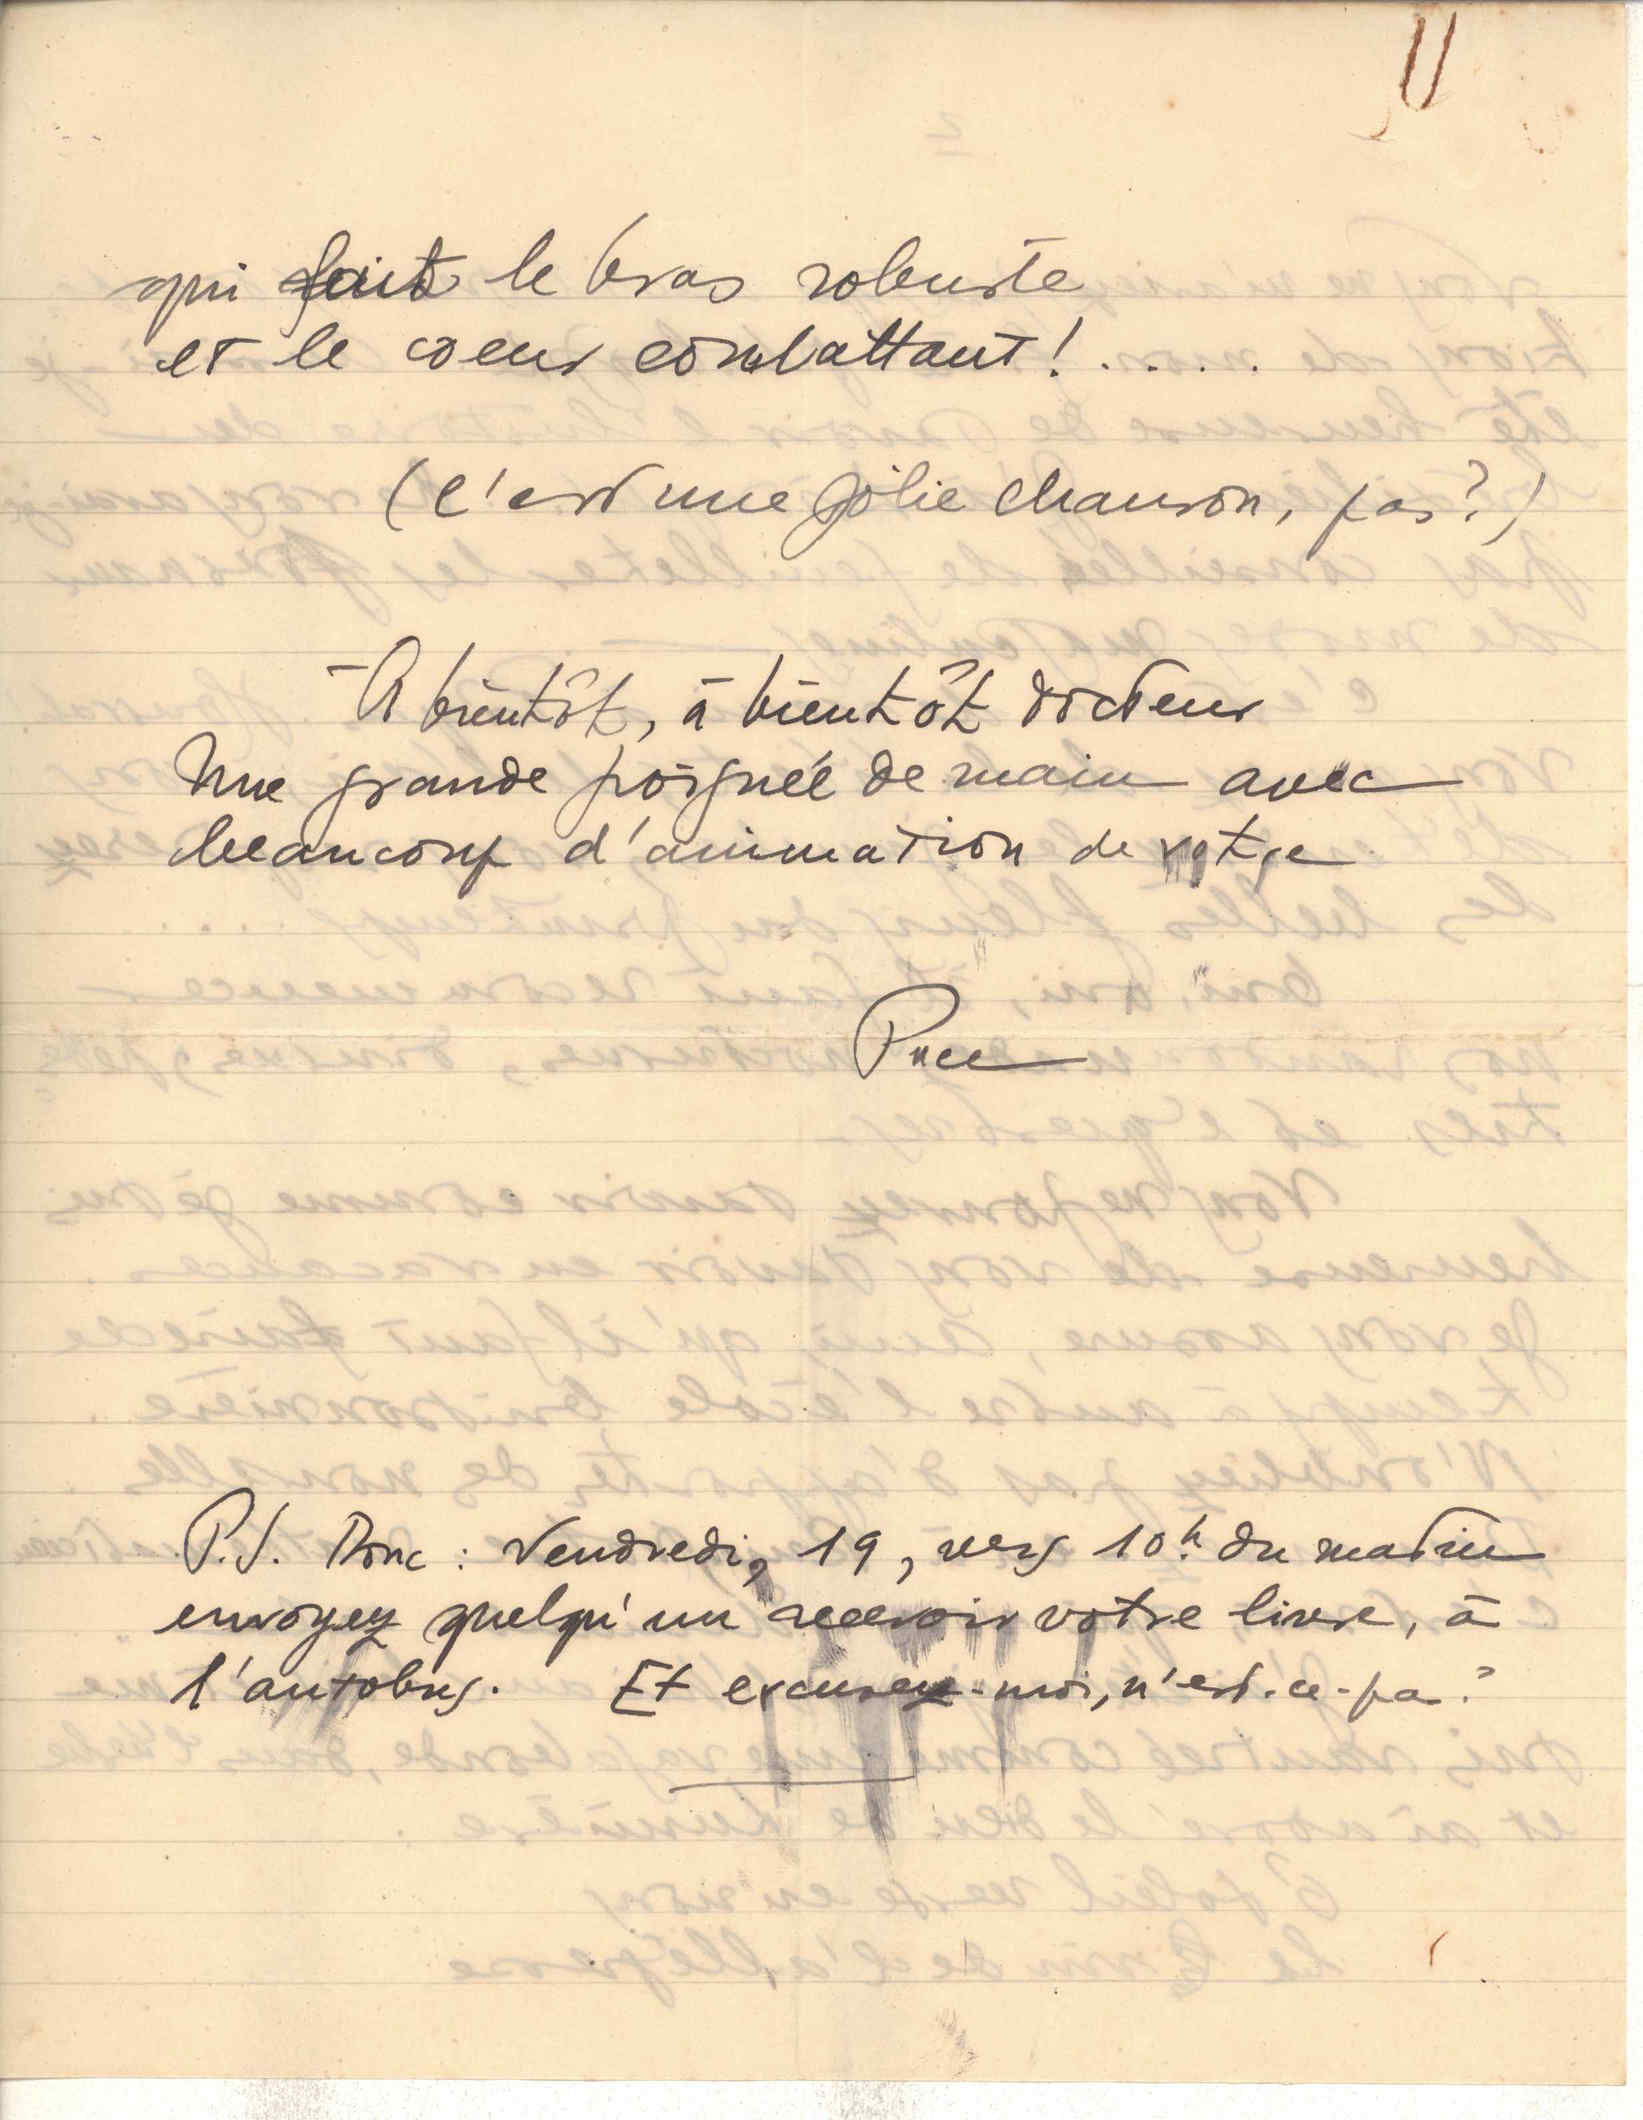 qui fait le bras robuste
et le coeur combattant! . . . . .
(C'est une jolie chanson, pas?)
- A bientôt, à bientôt docteur
Une grande poignée de main avec
beaucoup d'animation de votre
Puce
P.S. Donc : Vendredi, 19, vers 10h. du matin
envoyez quelqu'un recevoir votre livre, à
l'autobus. Et excusez-moi, n'est-ce-pas?